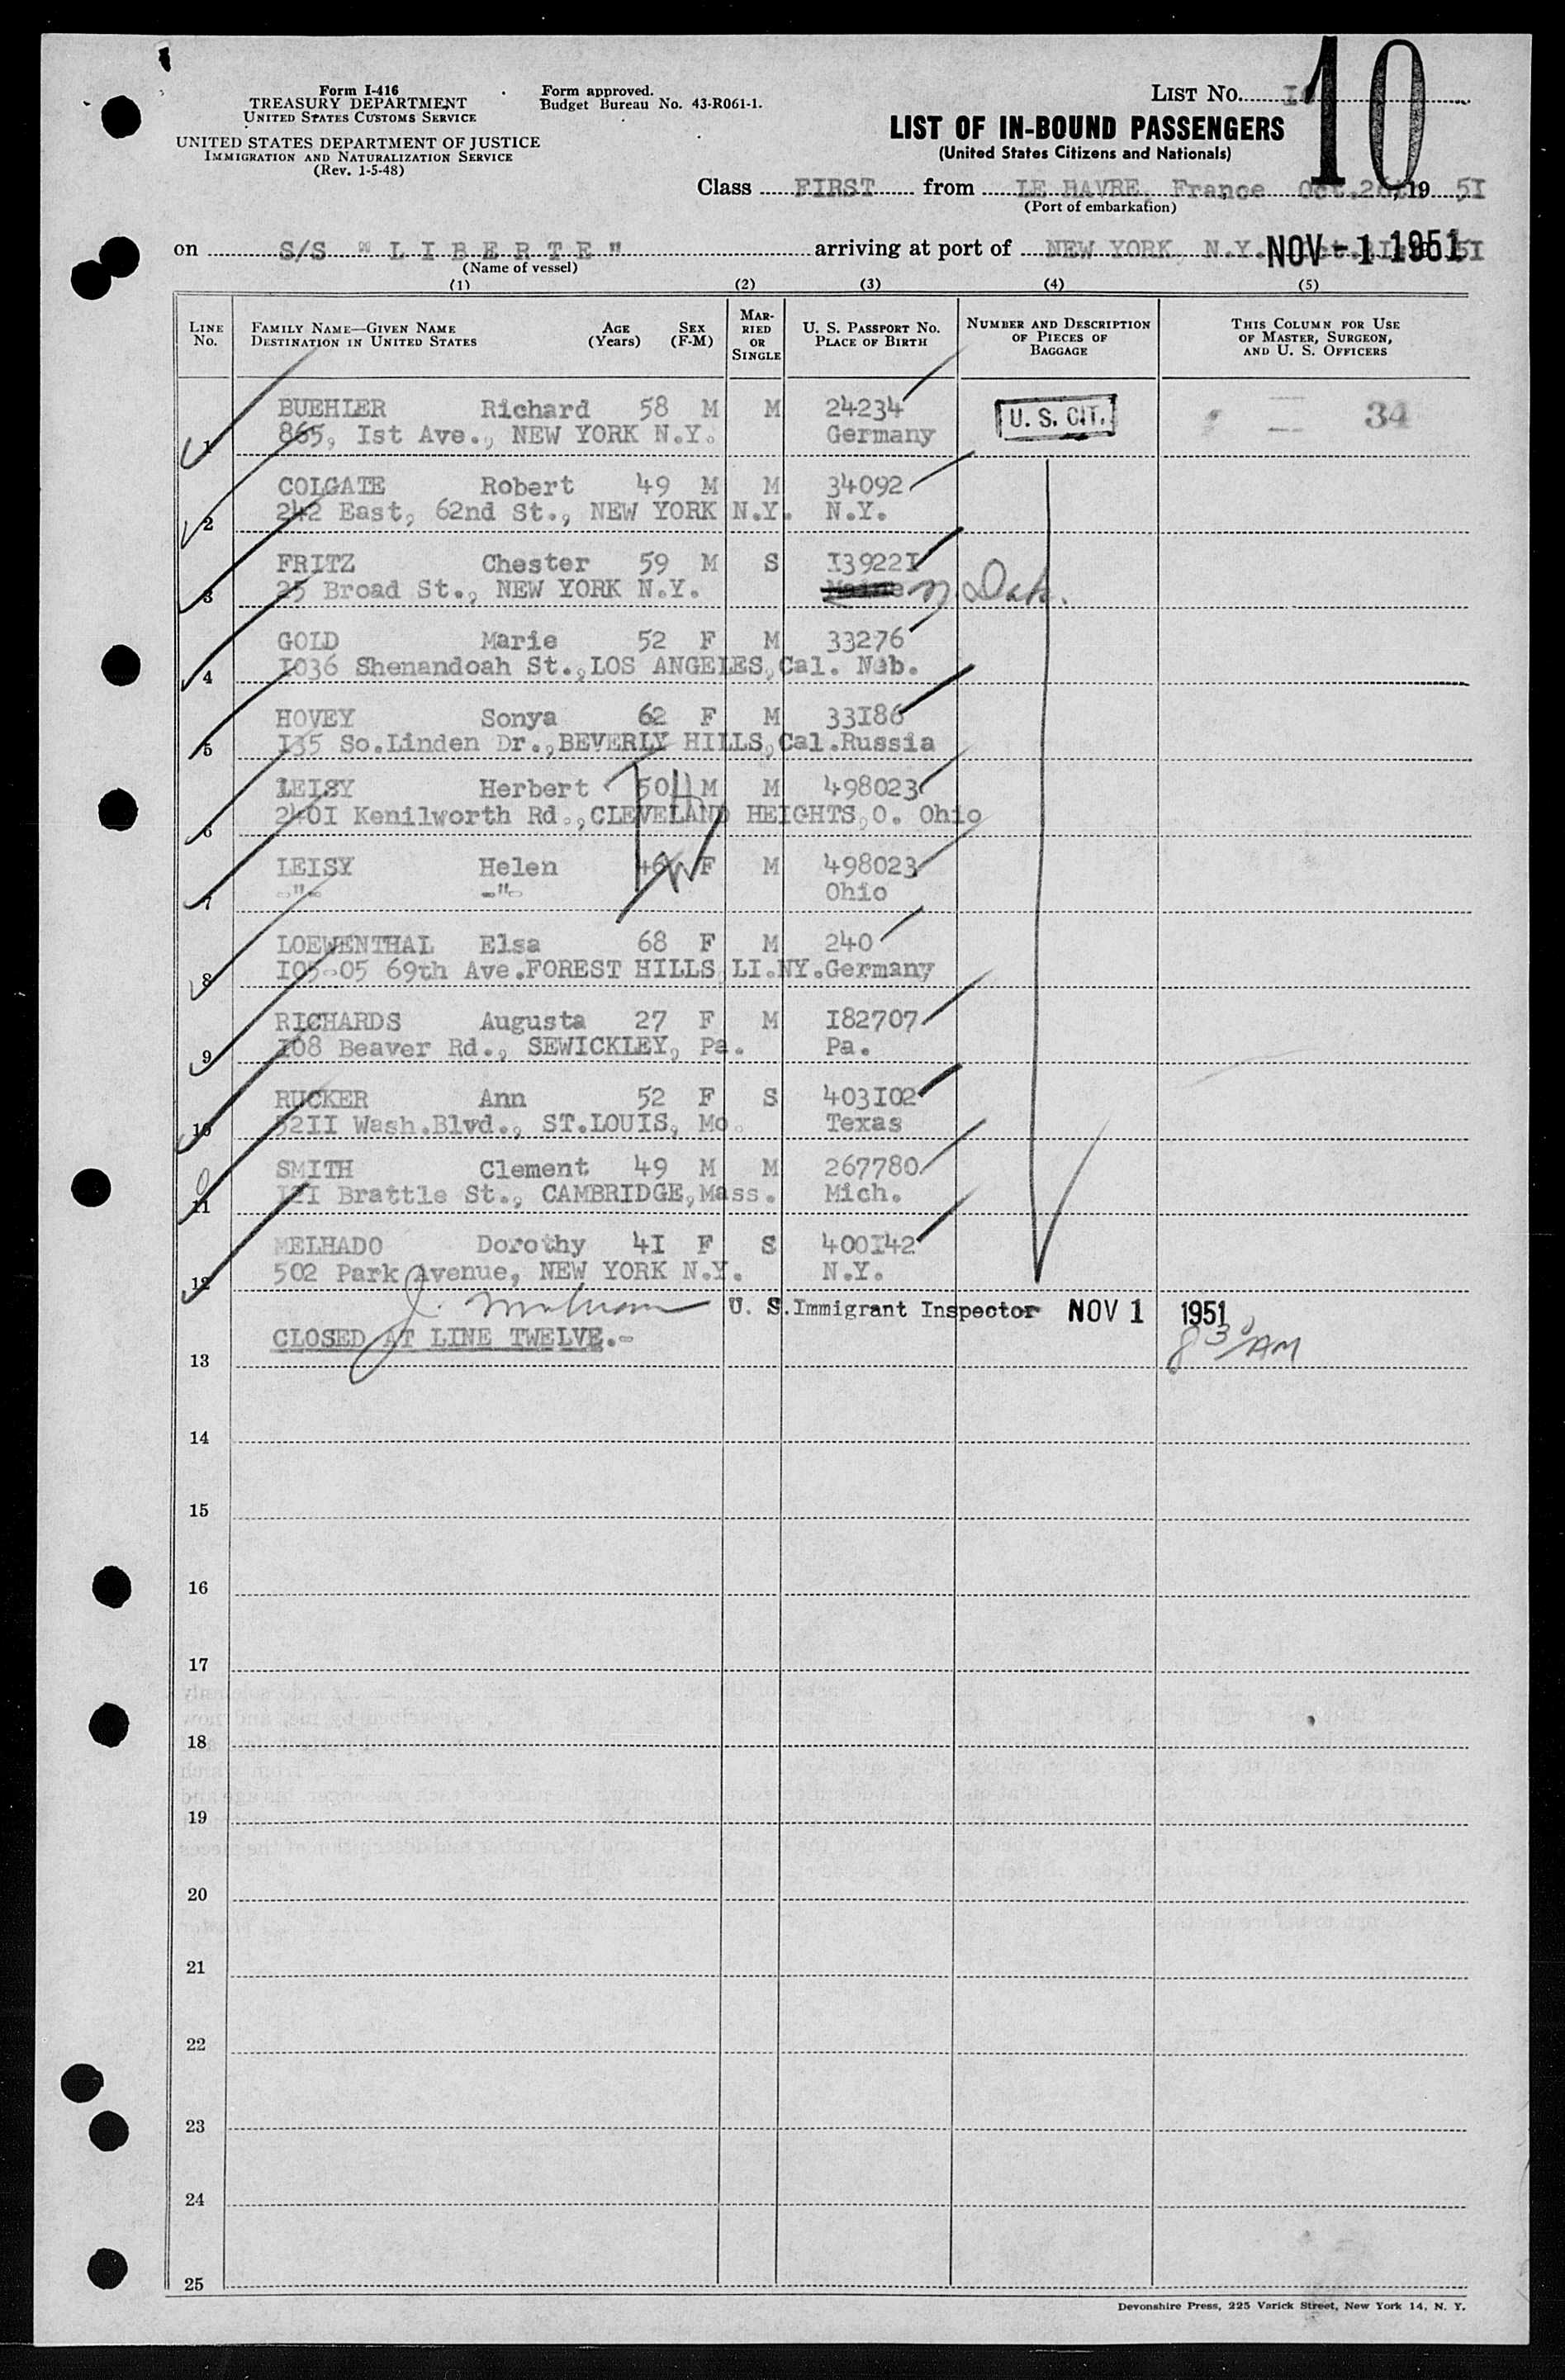 Form I-416
TREASURY DEPARTMENT
UNITED STATES CUSTOMS SERVICE
UNITED STATES DEPARTMENT OF JUSTICE
IMMIGRATION AND NATURALIZATION SERVICE
(Rev. 1-5-48)
Form approved.
Budget Bureau No. 43-R061-1.
LIST No. 10
LIST OF IN-BOUND PASSENGERS
(United States Citizens and Nationals)
Class FIRST from LE HAVRE, France Oct. 19 5I
(Port of embarkation)
on S/S " L I B E R T E " arriving at port of NEW YORK, N.Y. NOV - 1 1951 5I
(Name of vessel)
(1) (2) (3) (4) (5)
LINE No. FAMILY NAME—GIVEN NAME DESTINATION IN UNITED STATES AGE (Years) SEX (F-M) MARRIED OR SINGLE U. S. PASSPORT NO. PLACE OF BIRTH NUMBER AND DESCRIPTION OF PIECES OF BAGGAGE THIS COLUMN FOR USE OF MASTER, SURGEON, AND U. S. OFFICERS
BUEHLER Richard 58 M M 24234 U. S. CIT. 34
1 865, Ist Ave., NEW YORK N.Y. Germany
COLGATE Robert 49 M M 34092
2 242 East, 62nd St., NEW YORK N.Y. N.Y.
FRITZ Chester 59 M S I3922I
3 25 Broad St., NEW YORK N.Y. N Dak.
GOLD Marie 52 F M 33276
4 I036 Shenandoah St.,LOS ANGELES,Cal. Neb.
HOVEY Sonya 62 F M 33I86
5 I35 So.Linden Dr.,BEVERLY HILLS,Cal.Russia
LEISY Herbert 50 H M M 498023
6 240I Kenilworth Rd.,CLEVELAND HEIGHTS,O. Ohio
LEISY Helen 46 W F M 498023
7 -"- -"- Ohio
LOEWENTHAL Elsa 68 F M 240
8 I05-05 69th Ave.FOREST HILLS LI.NY.Germany
RICHARDS Augusta 27 F M I82707
9 I08 Beaver Rd., SEWICKLEY, Pa. Pa.
RUCKER Ann 52 F S 403I02
10 52II Wash.Blvd., ST.LOUIS, Mo. Texas
SMITH Clement 49 M M 267780
11 I2I Brattle St., CAMBRIDGE,Mass. Mich.
MELHADO Dorothy 4I F S 400I42
12 502 Park Avenue, NEW YORK N.Y. N.Y.
J. U. S. Immigrant Inspector NOV 1 1951
CLOSED AT LINE TWELVE.- 8 30 AM
13
14
15
16
17
18
19
20
21
22
23
24
25
Devonshire Press, 225 Varick Street, New York 14, N. Y.